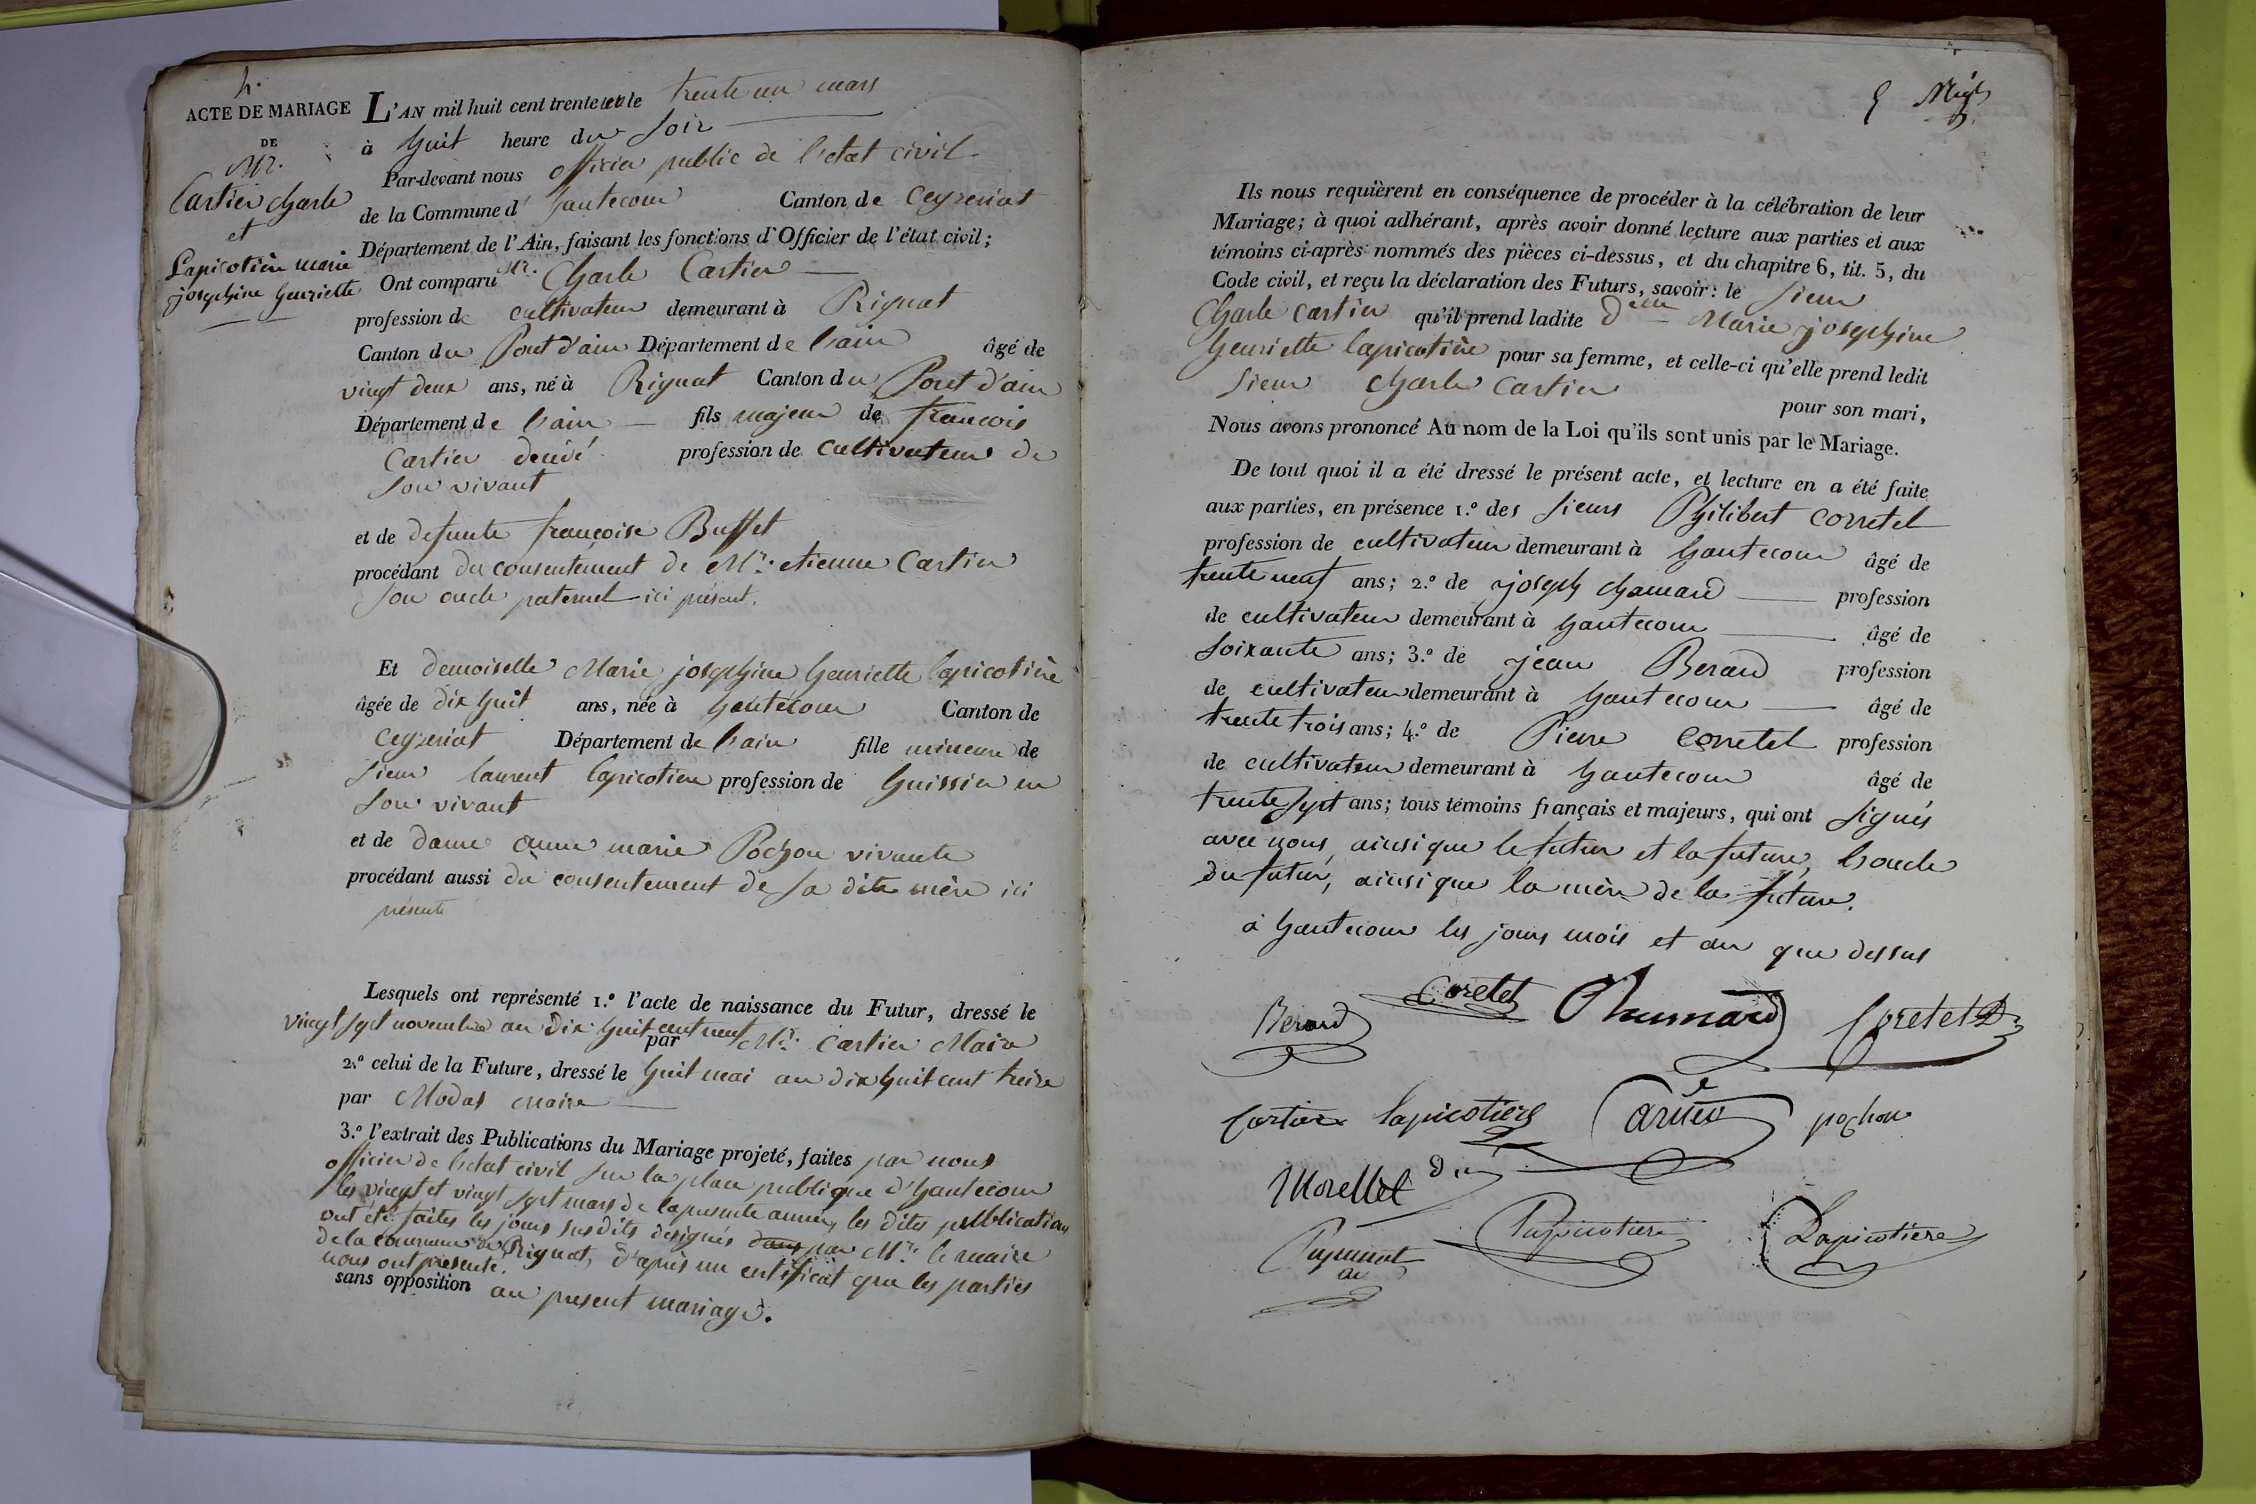 4.
ACTE DE MARIAGE
DE
Mr.
Cartier charle
et
Lapicotière marie
josephine henriette
L'AN mil huit cent trente le trente un mars
à huit heure du soir
Par-devant nous officier public de l'etat civil
de la Commune d'hautecour Canton de Ceyzeriat
Département de l'Ain, faisant les fonctions d'Officier de l'état civil;
Ont comparu Mr. Charle Cartier
profession de cultivateur demeurant à Rignat
Canton du Pont d'ain Département de l'ain âgé de
vingt deux ans, né à Rignat Canton du Pont d'ain
Département de l'ain fils majeur de francois
Cartier décédé profession de cultivateur de
son vivant
et de defunte francoise Buffet
procédant du consentement de Mr. etienne Cartier
son oncle paternel ici présent.
Et demoiselle Marie josephine henriette lapicotière
âgée de dix huit ans, née à hautécour Canton de
Ceyzeriat Département de l'ain fille mineure de
sieur laurent lapicotiere profession de huissier en
son vivant
et de dame anne marie Pochon vivante
procédant aussi du consentement de sa dite mère ici
présente
Lesquels ont représenté 1.º l'acte de naissance du Futur, dressé le
vingt sept novembre an dix huit cent neuf par Mr. Cartier Maire
2.º celui de la Future, dressé le huit mai an dix huit cent treize
par Modas maire
3.º l'extrait des Publications du Mariage projeté, faites par nous
officier de l'etat civil sur la place publique d'hautecour
les vingt et vingt sept mars de la presente année, les dites publications
ont été faites les jours susdits désignés dans par Mr. le maire
de la commune de Rignat, d'après un certificat que les parties
nous ont présenté.
sans opposition au present mariage.
5
Ils nous requièrent en conséquence de procéder à la célébration de leur
Mariage; à quoi adhérant, après avoir donné lecture aux parties et aux
témoins ci-après nommés des pièces ci-dessus, et du chapitre 6, tit. 5, du
Code civil, et reçu la déclaration des Futurs, savoir: le sieur
Charle Cartier qu'il prend ladite delle Marie josephine
henriette lapicotière pour sa femme, et celle-ci qu'elle prend ledit
sieur charle Cartier pour son mari,
Nous avons prononcé Au nom de la Loi qu'ils sont unis par le Mariage.
De tout quoi il a été dressé le présent acte, et lecture en a été faite
aux parties, en présence 1.º des sieurs Philibert corretel
profession de cultivateur demeurant à hautecour âgé de
trente neuf ans; 2.º de joseph chamard profession
de cultivateur demeurant à hautecour âgé de
soixante ans; 3.º de jean Berard profession
de cultivateur demeurant à hautecour âgé de
trente trois ans; 4.º de Pierre Corretel profession
de cultivateur demeurant à hautecour âgé de
trente sept ans; tous témoins français et majeurs, qui ont signés
avec nous, ainsi que le futur et la future, l'oncle
du futur, ainsi que la mère de la future.
à hautecour les jours mois et an que dessus
Berard Coretet Chumard Coretet
Cartier lapicotiere Cartier pochon
Morellet
Lapicotiere Lapicotiere